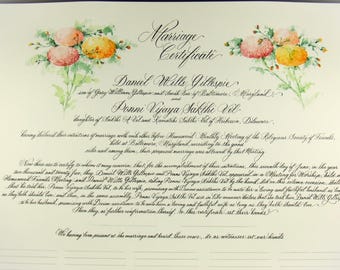 Marriage
Certificate
Daniel Wills Gillespie
son of Gary William Gillespie and Sarah Lou of Baltimore, Maryland
and
Ponni Vijaya Sakthi Vel
daughter of Sakthi Vel and Vel of Delaware
having declared their intentions of marriage with each other before Homewood Monthly Meeting of the Religious Society of Friends,
held at Baltimore, Maryland, according to the
and among them, their proposed marriage was allowed by that Meeting
Now these are to certify to whom it may concern, that for the accomplishment of their intentions, this day of June, in the year
two thousand and twenty five, they Daniel Wills Gillespie and Ponni Vijaya Sakthi Vel, appeared in a Meeting for Worship, held at
Homewood Friends Meeting and Daniel Wills Gillespie taking Ponni Vijaya Sakthi Vel by the hand, did on this solemn occasion, declare
that he took her, Ponni Vijaya Sakthi Vel, to be his wife, promising with Divine assistance to be unto her a loving and faithful husband so long as
they both should live; and then, in the same assembly, Ponni Vijaya Sakthi Vel in like manner declare that she took him Daniel Wills
to be her husband, promising with Divine assistance to be unto him a loving and faithful wife so long as they both should live. And
they, as further confirmation thereof, to this certificate set their hands.
We having been present at the marriage and heard these vows, do as witnesses set our hands